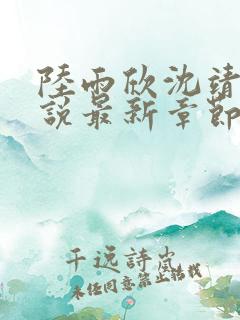 陸雨欣沈靖
說最新章節
千远詩嵐
未经同意禁止搭载